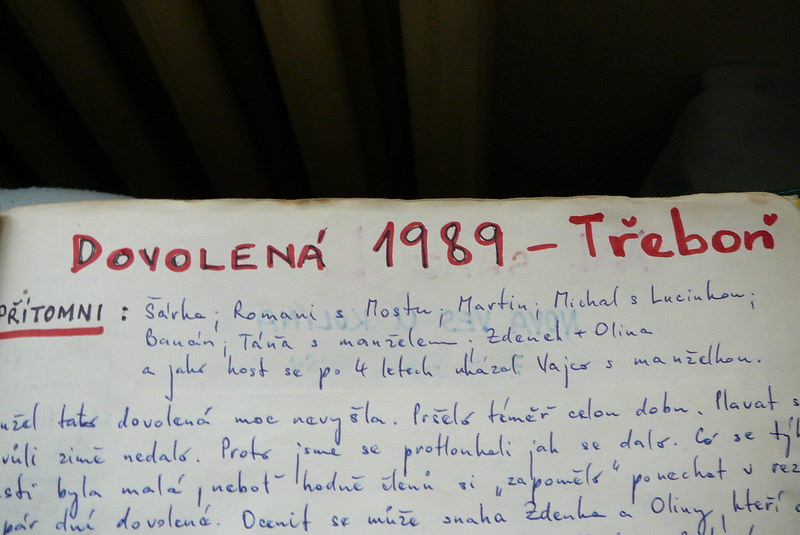 DOVOLENÁ 1989 – Třeboň
PŘÍTOMNI : Šárka; Romani s Mostu; Martin; Michal s Lucinkou;
Banán; Táňa s manželem; Zdeněk + Olina
a jako host se po 4 letech ukázal Vajco s manželkou.
užel tato dovolená moc nevyšla. Pršelo téměř celou dobu. Plavat s
vůli zimě nedalo. Proto jsme se protloukali jak se dalo. Co se týk
sti byla malá, neboť hodně členů si „zapomělo" ponechat v rez
pár dní dovolené. Ocenit se může snaha Zdenka a Oliny, kteří